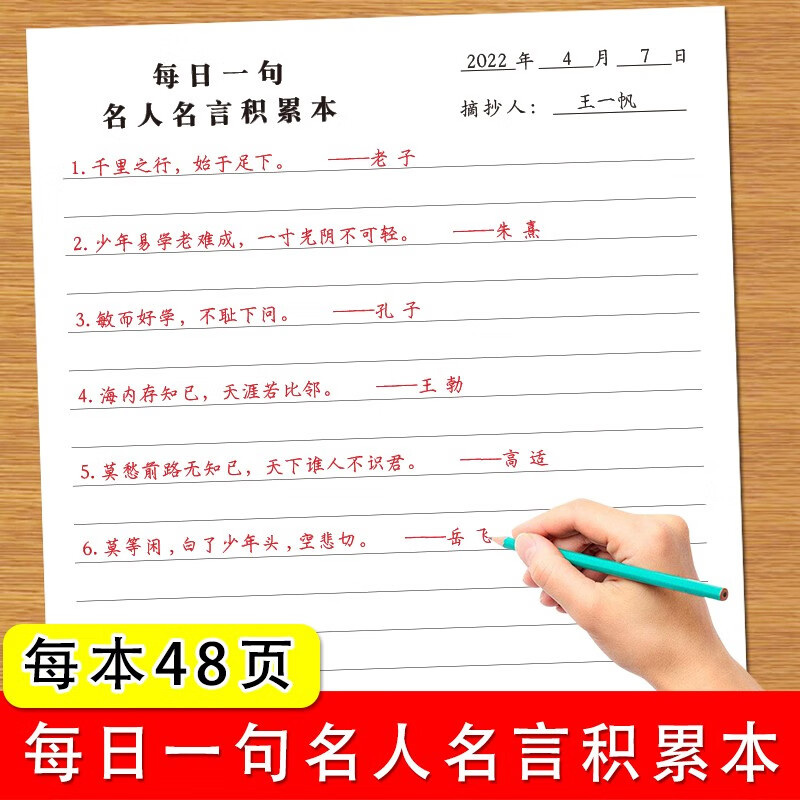 每日一句
名人名言积累本
2022年 4 月 7 日
摘抄人: 王一帆
1.千里之行，始于足下。 ——老 子
2.少年易学老难成，一寸光阴不可轻。 ——朱 熹
3.敏而好学，不耻下问。 ——孔 子
4.海内存知已，天涯若比邻。 ——王 勃
5.莫愁前路无知已，天下谁人不识君。 ——高 适
6.莫等闲,白了少年头,空悲切。 ——岳 飞
每本48页
每日一句名人名言积累本